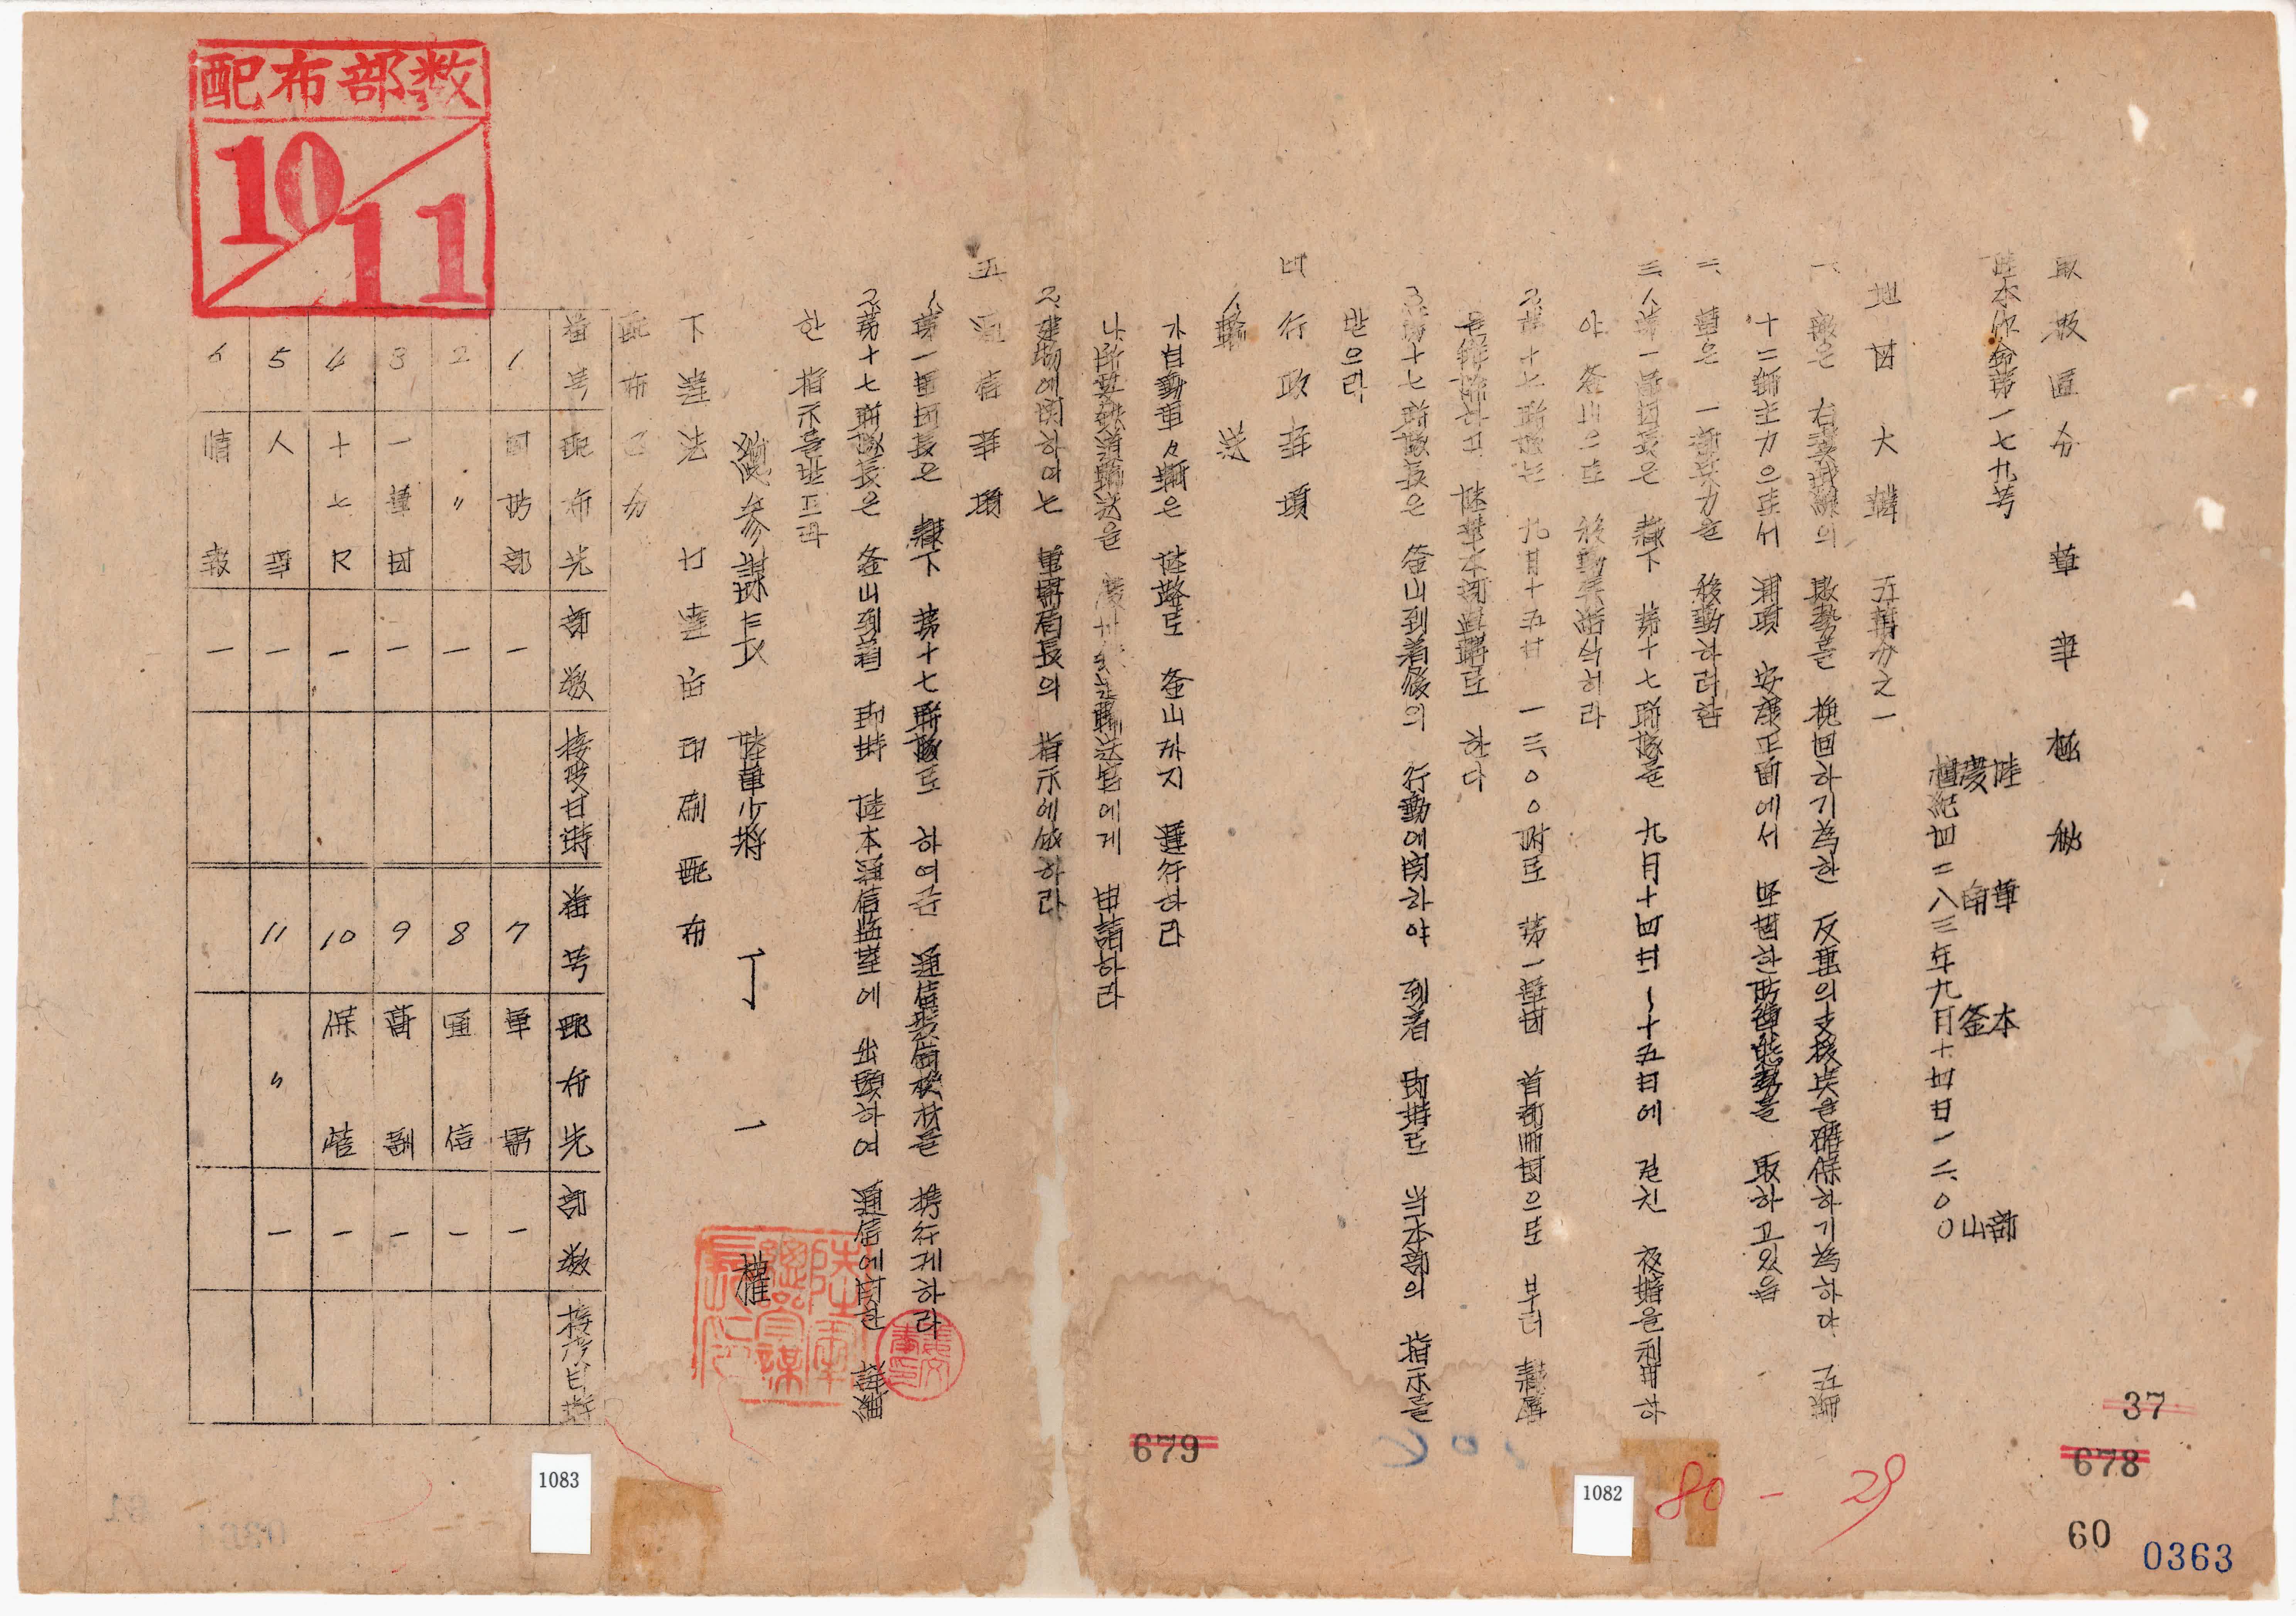 取扱區分 軍事極秘
陸本作命第一七九号
陸軍本部
慶南 釜山
檀紀四二八三年九月十四日一二、〇〇
地図 大韓 五萬分之一
一、敵은 右翼戰線의 敗勢를 挽回하기 為한 反撃의 支撑点을 確保하기 為하야 五師
十二師主力으로서 浦項 安康正面에서 堅固한 防禦態勢를 取하고 있음
二、軍은 一部兵力을 移動하려함
三、1、第一軍団長은 隷下 第十七聯隊를 九月十四日~十五日에 걸친 夜暗을 利用하
야 釜山으로 移動集結식히라
2、第十七聯隊는 九月十五日 一三、〇〇時로 第一軍団 首都師団으로부터 隷属
을 解除하고 陸軍本部直轄로 한다
3、第十七聯隊長은 釜山到着後의 行動에 関하야 到着 即時로 当本部의 指示를
받으라
四 行政事項
1、輸送
가 自動車々輛은 陸路로 釜山까지 運行하라
나 所要鉄道輸送을 慶州 輸送官에게 申請하라
2、建物에 関하여는 軍需局長의 指示에 依하라
五 通信事項
1、第一軍団長은 隷下 第十七聯隊로 하여금 通信機材를 携行케하라
2、第十七聯隊長은 釜山到着 即時 陸本通信監室에 出頭하여 通信에 関한 詳細
한 指示를 받으라
總参謀長 陸軍少將 丁 一 權
陸軍總參謀長印
下達法 打達 印刷配布
配布区分
番号 配布先 部数 接受日時 番号 配布先 部数 接受日時
1 國防部 一 7 軍需 一
2 〃 一 8 通信 一
3 一軍团 一 9 高副 一
4 十七R 一 10 保管 一
5 人事 一 11 〃 一
6 情報 一
配布部数
10/11
1083
679
1082
80-29
37
678
60
0363